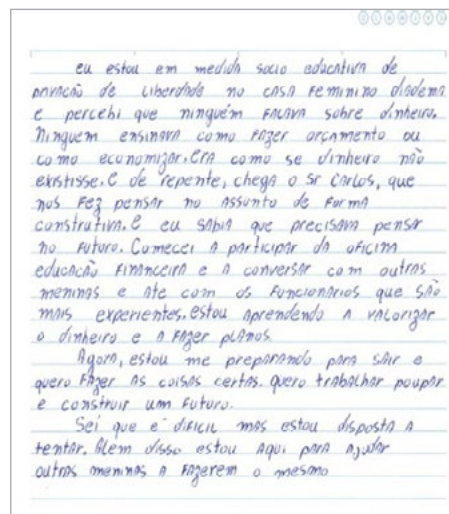 eu estou em medida socio educativa de
privação de liberdade no casa feminino diadema
e percebi que ninguém falava sobre dinheiro.
Ninguem ensinava como fazer orçamento ou
como economizar. era como se dinheiro não
existisse. e de repente, chega o Sr Carlos, que
nos fez pensar no assunto de forma
construtiva. e eu sabia que precisava pensar
no futuro. Comecei a participar da oficina
educacão financeira e a conversar com outras
meninas e ate com os funcionários que são
mais experientes. estou aprendendo a valorizar
o dinheiro e a fazer planos.
Agora, estou me preparando para sair e
quero fazer as coisas certas. quero trabalhar poupar
e construir um futuro.
Sei que é dificil mas estou disposta a
tentar. Alem disso estou aqui para ajudar
outras meninas a fazerem o mesmo